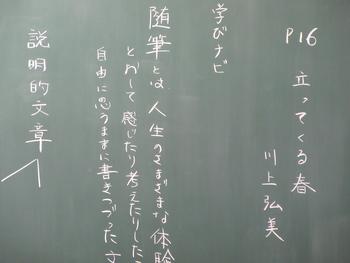 P16 立ってくる春
川上弘美
学びナビ
随筆とは、人生のさまざまな体験
とおして感じたり考えたりした
自由に思うままに書きつづった文
説明的文章